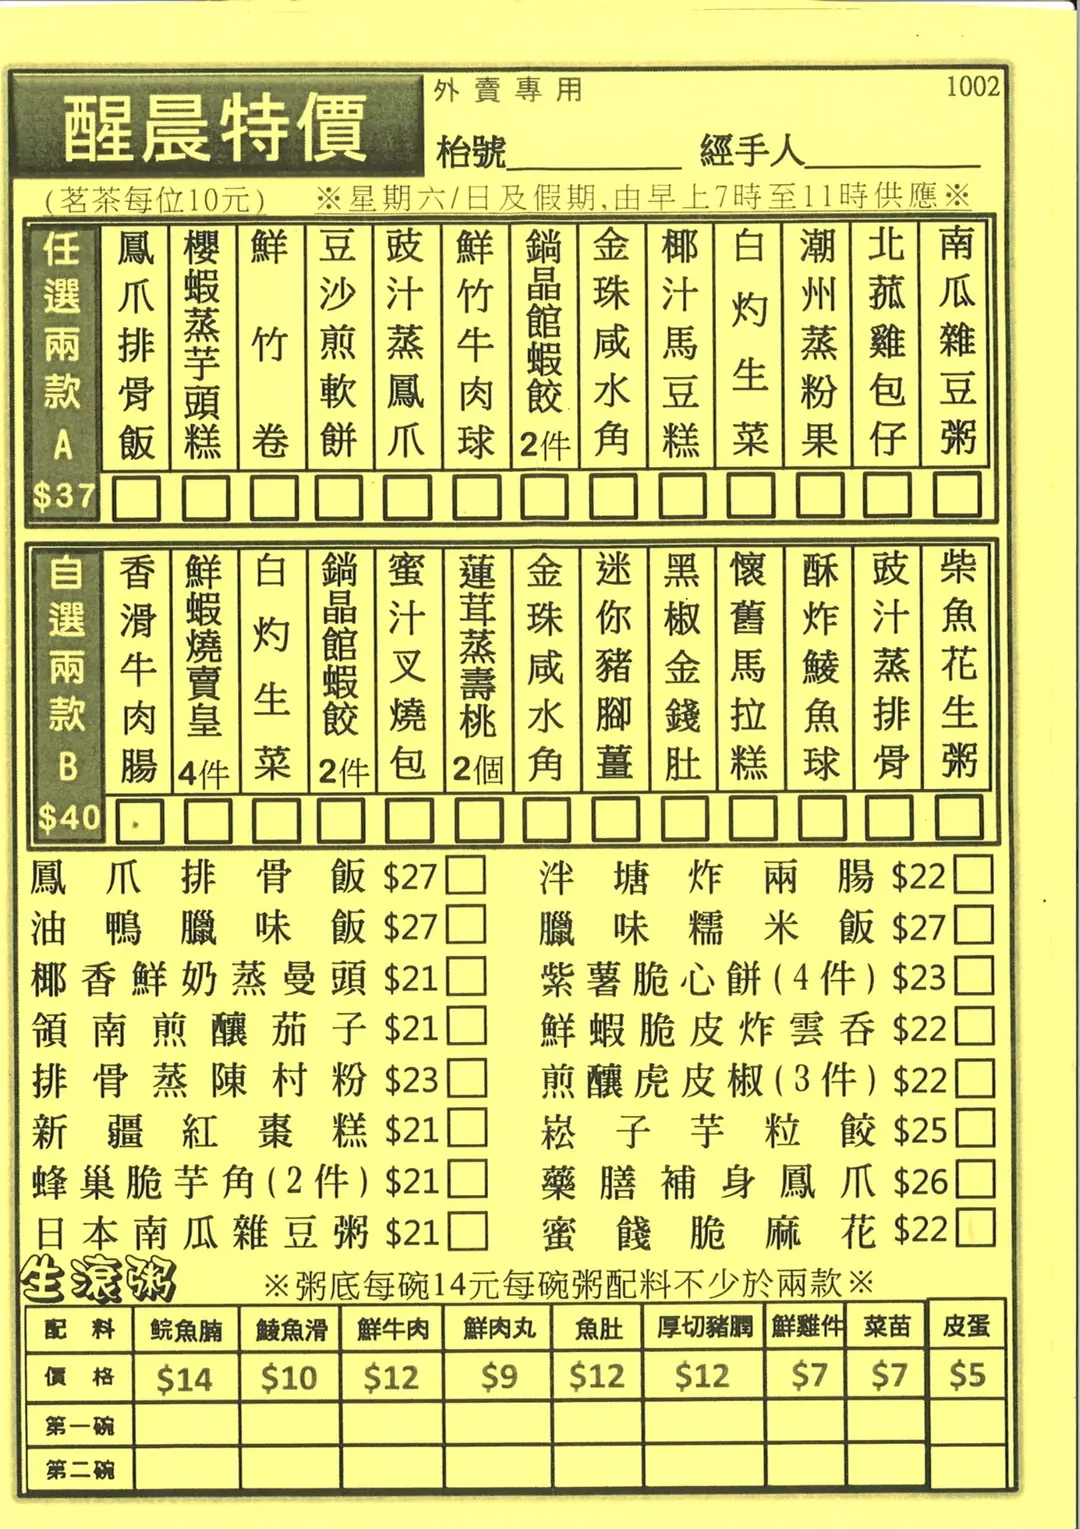 醒晨特價
外賣專用
1002
枱號
經手人
(茗茶每位10元)
※星期六/日及假期,由早上7時至11時供應※
任選兩款A $37
鳳爪排骨飯
櫻蝦蒸芋頭糕
鮮竹卷
豆沙煎軟餅
豉汁蒸鳳爪
鮮竹牛肉球
鍋晶館蝦餃2件
金珠咸水角
椰汁馬豆糕
白灼生菜
潮州蒸粉果
北菰雞包仔
南瓜雜豆粥
自選兩款B $40
香滑牛肉腸
鮮蝦燒賣皇4件
白灼生菜
鍋晶館蝦餃2件
蜜汁叉燒包
蓮茸蒸壽桃2個
金珠咸水角
迷你豬腳薑
黑椒金錢肚
懷舊馬拉糕
酥炸鯪魚球
豉汁蒸排骨
柴魚花生粥
鳳爪排骨飯 $27
泮塘炸兩腸 $22
油鴨臘味飯 $27
臘味糯米飯 $27
椰香鮮奶蒸曼頭 $21
紫薯脆心餅(4件) $23
領南煎釀茄子 $21
鮮蝦脆皮炸雲吞 $22
排骨蒸陳村粉 $23
煎釀虎皮椒(3件) $22
新疆紅棗糕 $21
崧子芋粒餃 $25
蜂巢脆芋角(2件) $21
藥膳補身鳳爪 $26
日本南瓜雜豆粥 $21
蜜餞脆麻花 $22
生滾粥
※粥底每碗14元每碗粥配料不少於兩款※
配料 鯇魚腩 鯪魚滑 鮮牛肉 鮮肉丸 魚肚 厚切豬膶 鮮雞件 菜苗 皮蛋
價格 $14 $10 $12 $9 $12 $12 $7 $7 $5
第一碗
第二碗